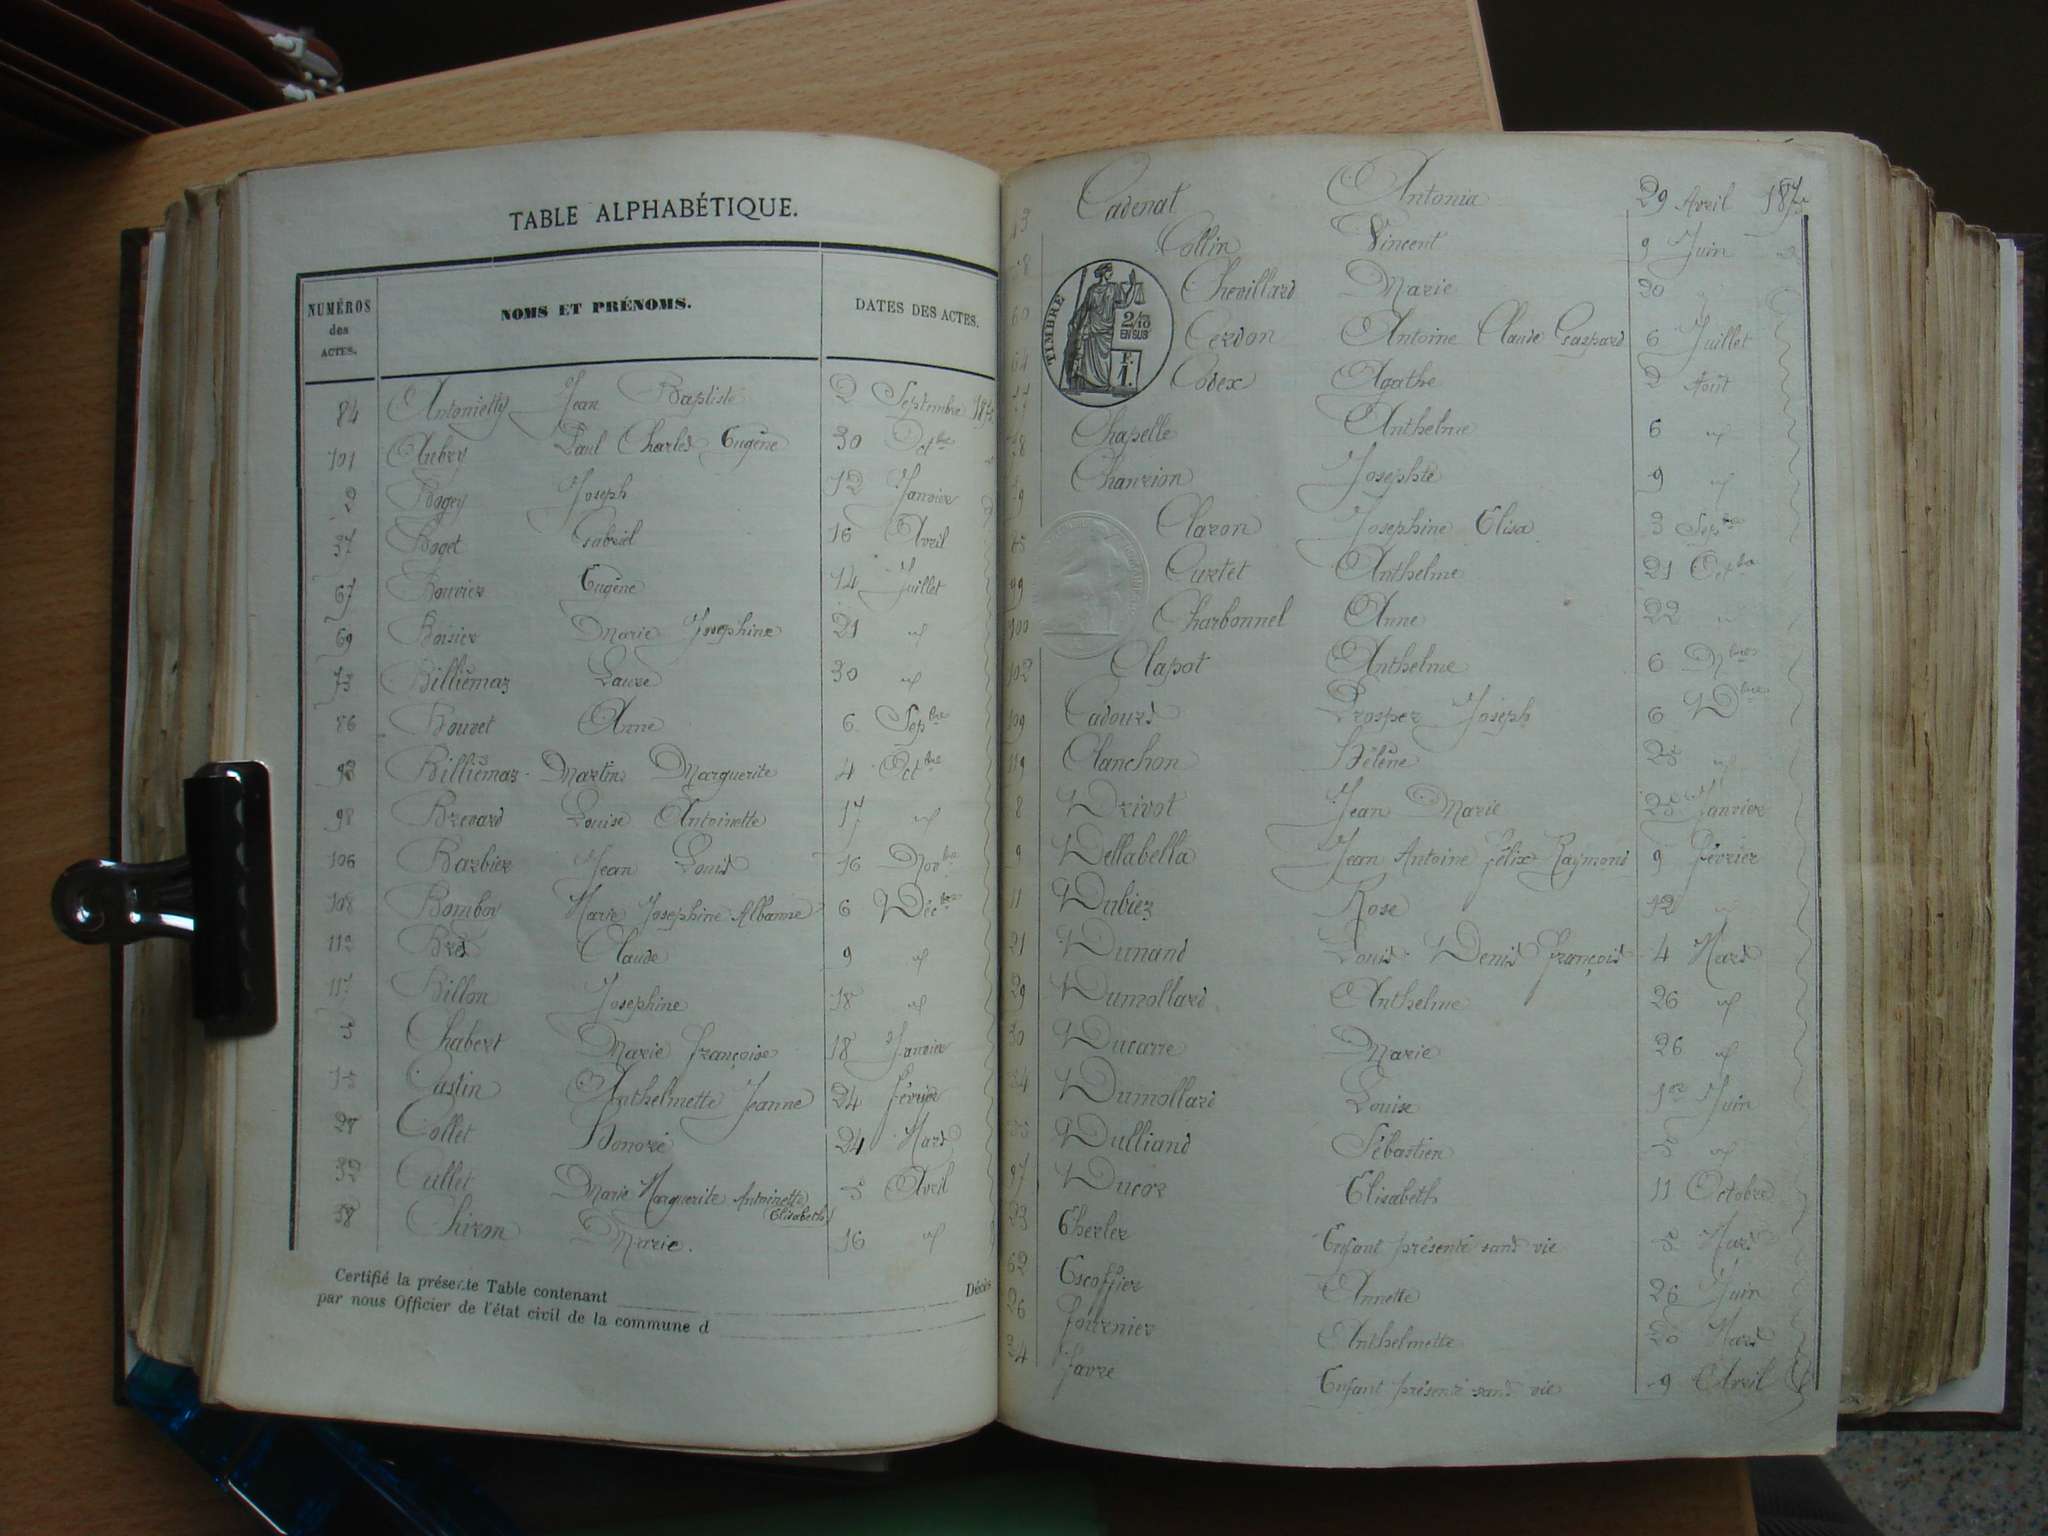 TABLE ALPHABÉTIQUE.
NUMÉROS des ACTES. NOMS ET PRÉNOMS. DATES DES ACTES.
84 Antonietty Jean Baptiste 2 Septembre
101 Aubry Paul Charles Eugène 30 Oct bre
2 Bogey Joseph 12 Janvier
37 Boget Gabriel 16 Avril
67 Bouvier Eugène 14 Juillet
69 Boisier Marie Josephine 21 "
73 Billiémaz Laure 30 "
86 Bouvet Anne 6 Sep bre
93 Billiémaz Martin Marguerite 4 Oct bre
98 Brevard Louise Antoinette 17 "
106 Barbier Jean Louis 16 Nov bre
108 Bomboy Marie Josephine Albanne 6 Déc bre
112 Bres Claude 9 "
117 Billon Josephine 18 "
5 Chabert Marie Françoise 18 Janvier
15 Castin Anthelmette Jeanne 24 Février
27 Collet Honoré 24 Mars
32 Cullet Marie Marguerite Antoinette 5 Avril
(Elisabeth)
38 Chiron Marie. 16 "
Certifié la présente Table contenant Décès
par nous Officier de l'état civil de la commune d
Cadenat Antonia 29 Avril
Collin Vincent 9 Juin
TIMBRE
2/10
EN SUS
Chevillard Marie 20 "
60 Cerdon Antoine Claude Gaspard 6 Juillet
64 Codex Agathe 2 Août
Chapelle Anthelme 6 "
Chanrion Josephte 9 "
Claron Josephine Elisa 3 Sep bre
99 Curtet Anthelme 21 Oct bre
100 Charbonnel Anne 22 "
102 Clapot Anthelme 6 N bre
109 Cadourd Prosper Joseph 6 D bre
119 Clanchon Hélène 25 "
8 Drivot Jean Marie Janvier
9 Dellabella Jean Antoine Félix Raymond 9 Février
11 Dubiez Rose 12 "
21 Dunand Louis Denis François 4 Mars
29 Dumollard Anthelme 26 "
30 Ducarre Marie 26 "
Dumollard Louise 1er Juin
Dulliand Sébastien 5 "
97 Ducor Elisabeth 11 Octobre
23 Eherler Enfant présenté sans vie 5 Mars
62 Escoffier Annette 26 Juin
26 Fournier Anthelmette 20 Mars
34 Favre Enfant présenté sans vie 9 Avril